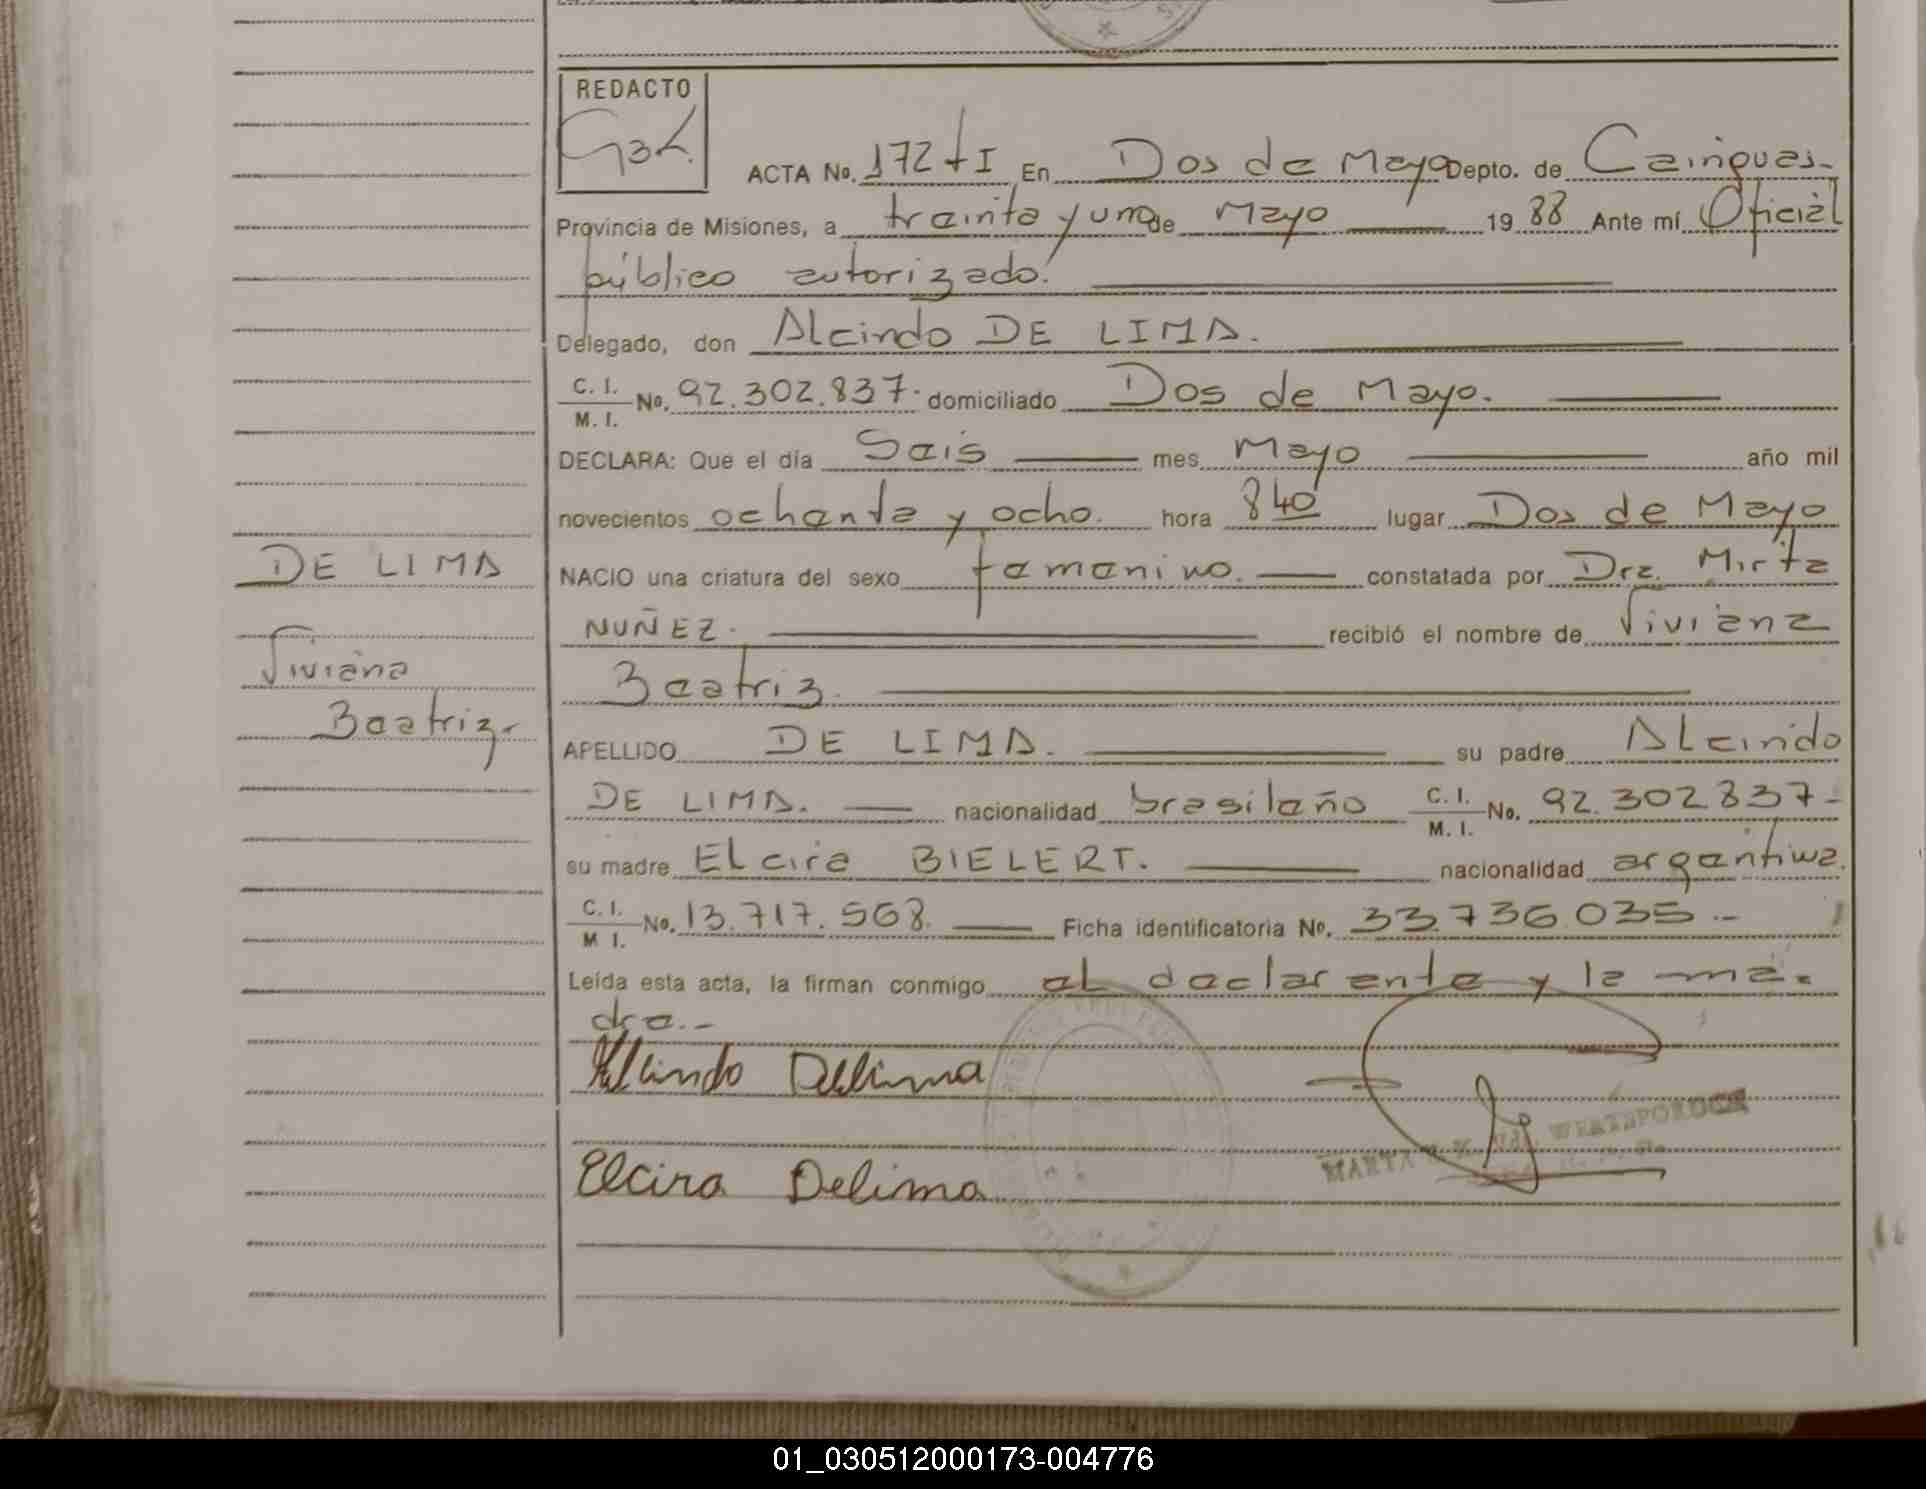 REDACTO
ACTA No. 172 fI En Dos de Mayo Depto. de Cainguas.
Provincia de Misiones, a treinta y uno de Mayo 19 88 Ante mí Oficial
público autorizado.
Delegado, don Alcindo DE LIMA.
C. I.
M. I. No. 92.302.837. domiciliado Dos de Mayo.
DECLARA: Que el día Seis mes Mayo año mil
novecientos ochenta y ocho. hora 840 lugar Dos de Mayo
DE LIMA
NACIO una criatura del sexo femenino. constatada por Dra. Mirta
NUÑEZ. recibió el nombre de Viviana
Viviana
Beatriz.
Beatriz.
APELLIDO DE LIMA. su padre Alcindo
DE LIMA. nacionalidad brasileño C. I.
M. I. No. 92.302837-
su madre Elcira BIELERT. nacionalidad argentina.
C. I.
M I. No. 13.717.568. Ficha identificatoria No. 33.736.035.-
Leída esta acta, la firman conmigo el declarante y la ma-
dre.-
Alcindo Delima
MARTA WESTEPORUCK
Elcira Delima
01_030512000173-004776